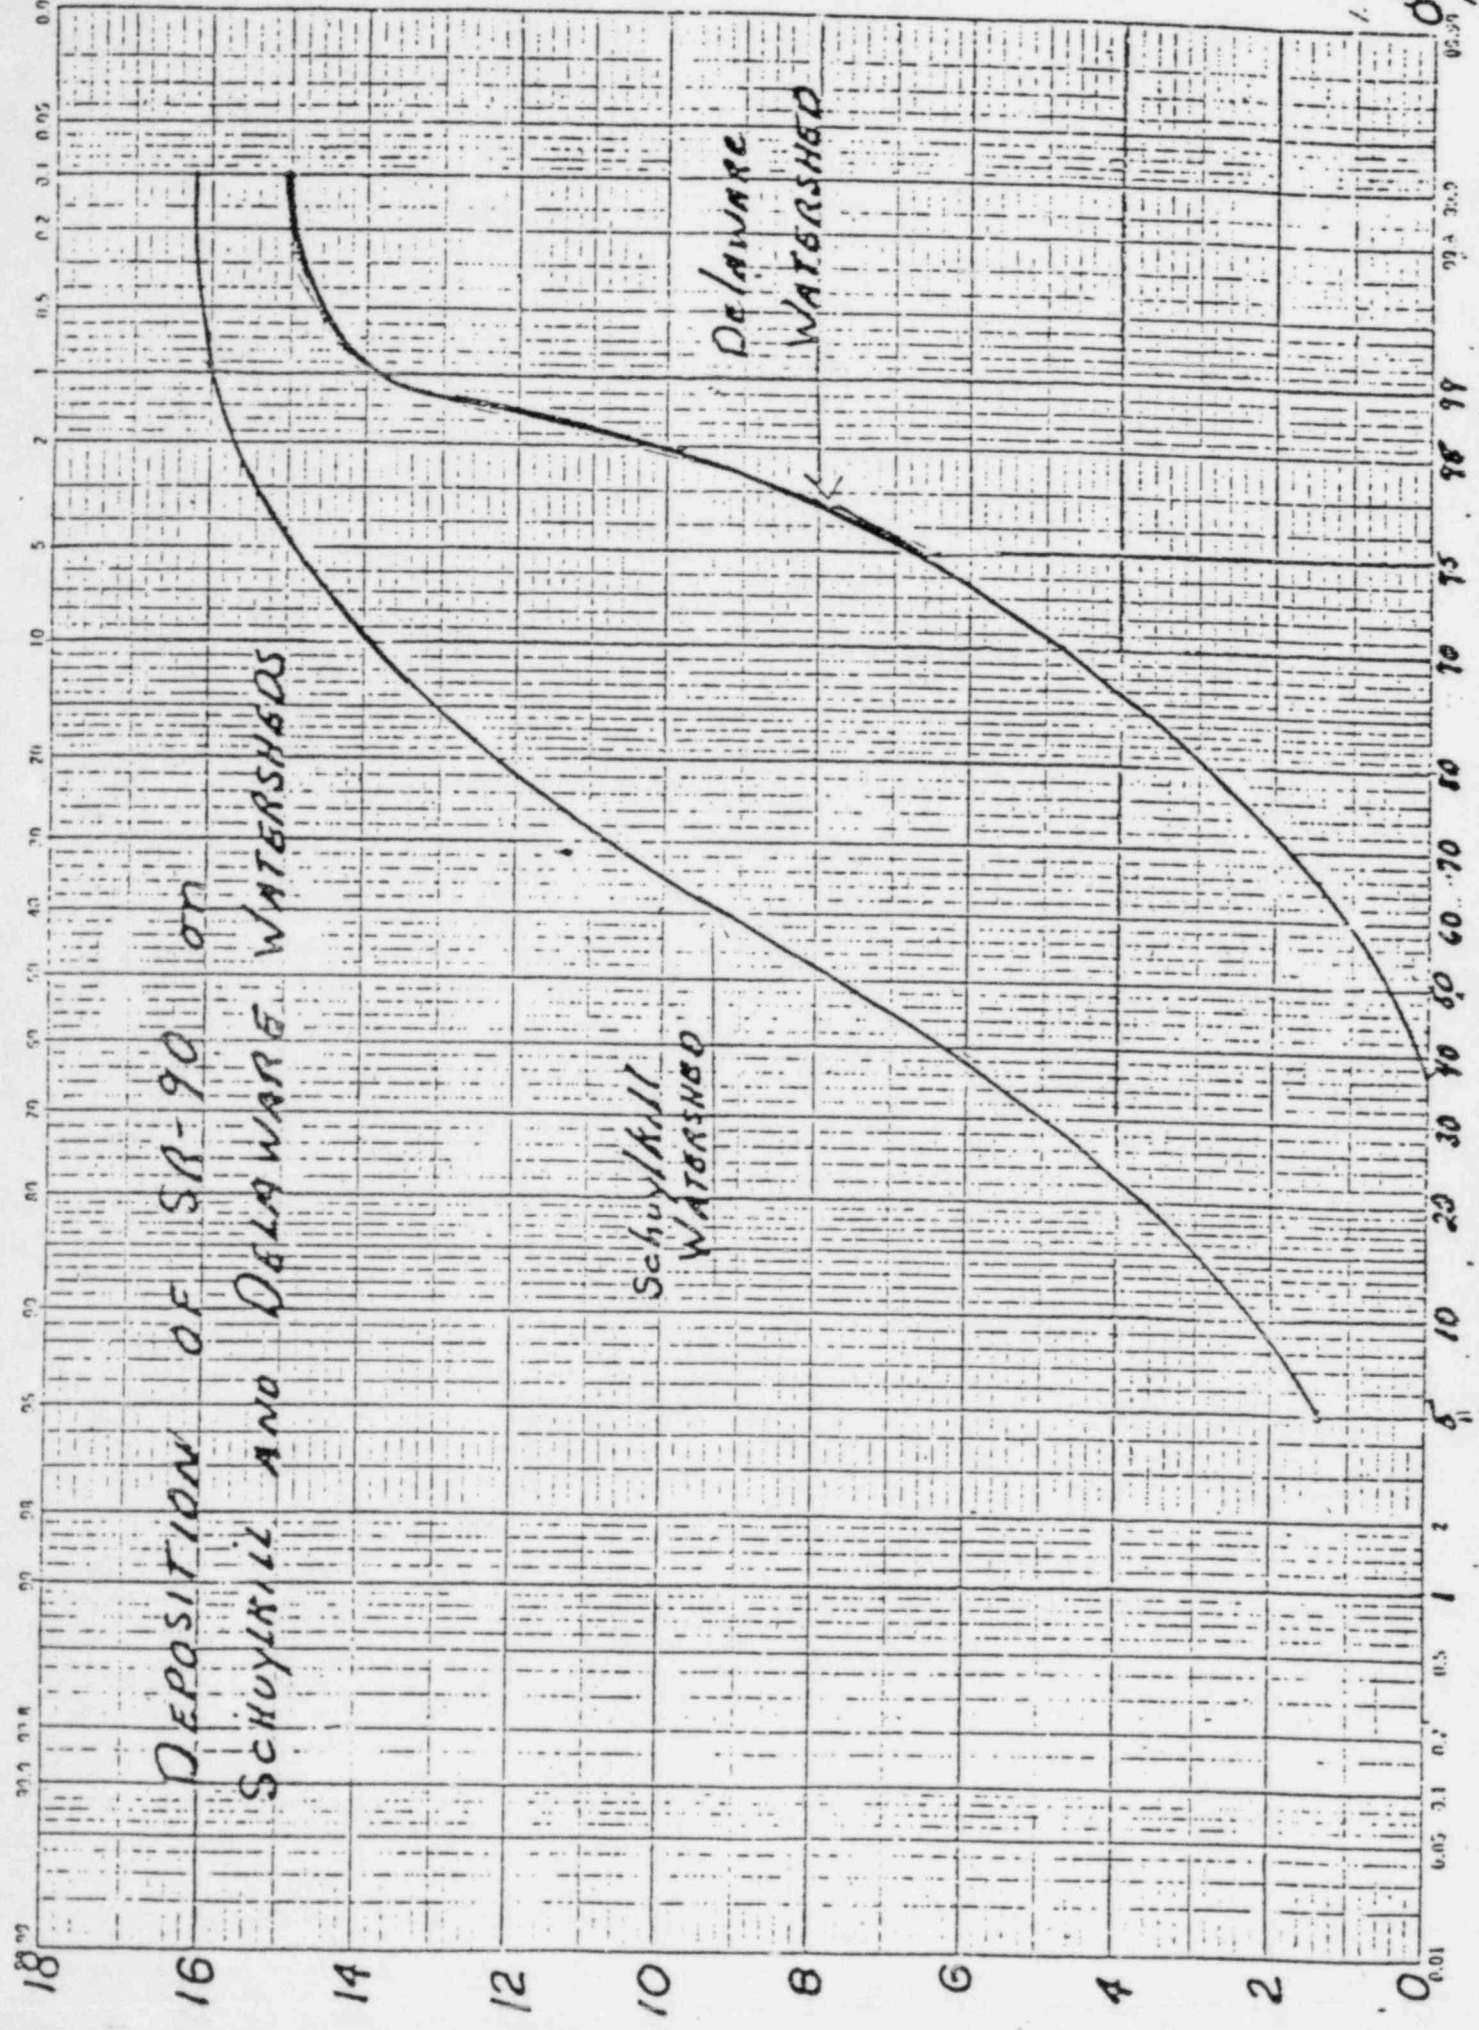 DEPOSITION OF SR-90 on
SCHUYLKILL AND DELAWARE WATERSHEDS
Schuylkill
WATERSHED
Delaware
WATERSHED
18
16
14
12
10
8
6
4
2
0
99.9 99.8 99 98 95 90 80 70 60 50 40 30 20 10 5 2 1 0.5 0.2 0.1 0.05
0.01 0.05 0.1 0.2 0.5 1 2 5 10 20 30 40 50 60 70 80 90 95 98 99